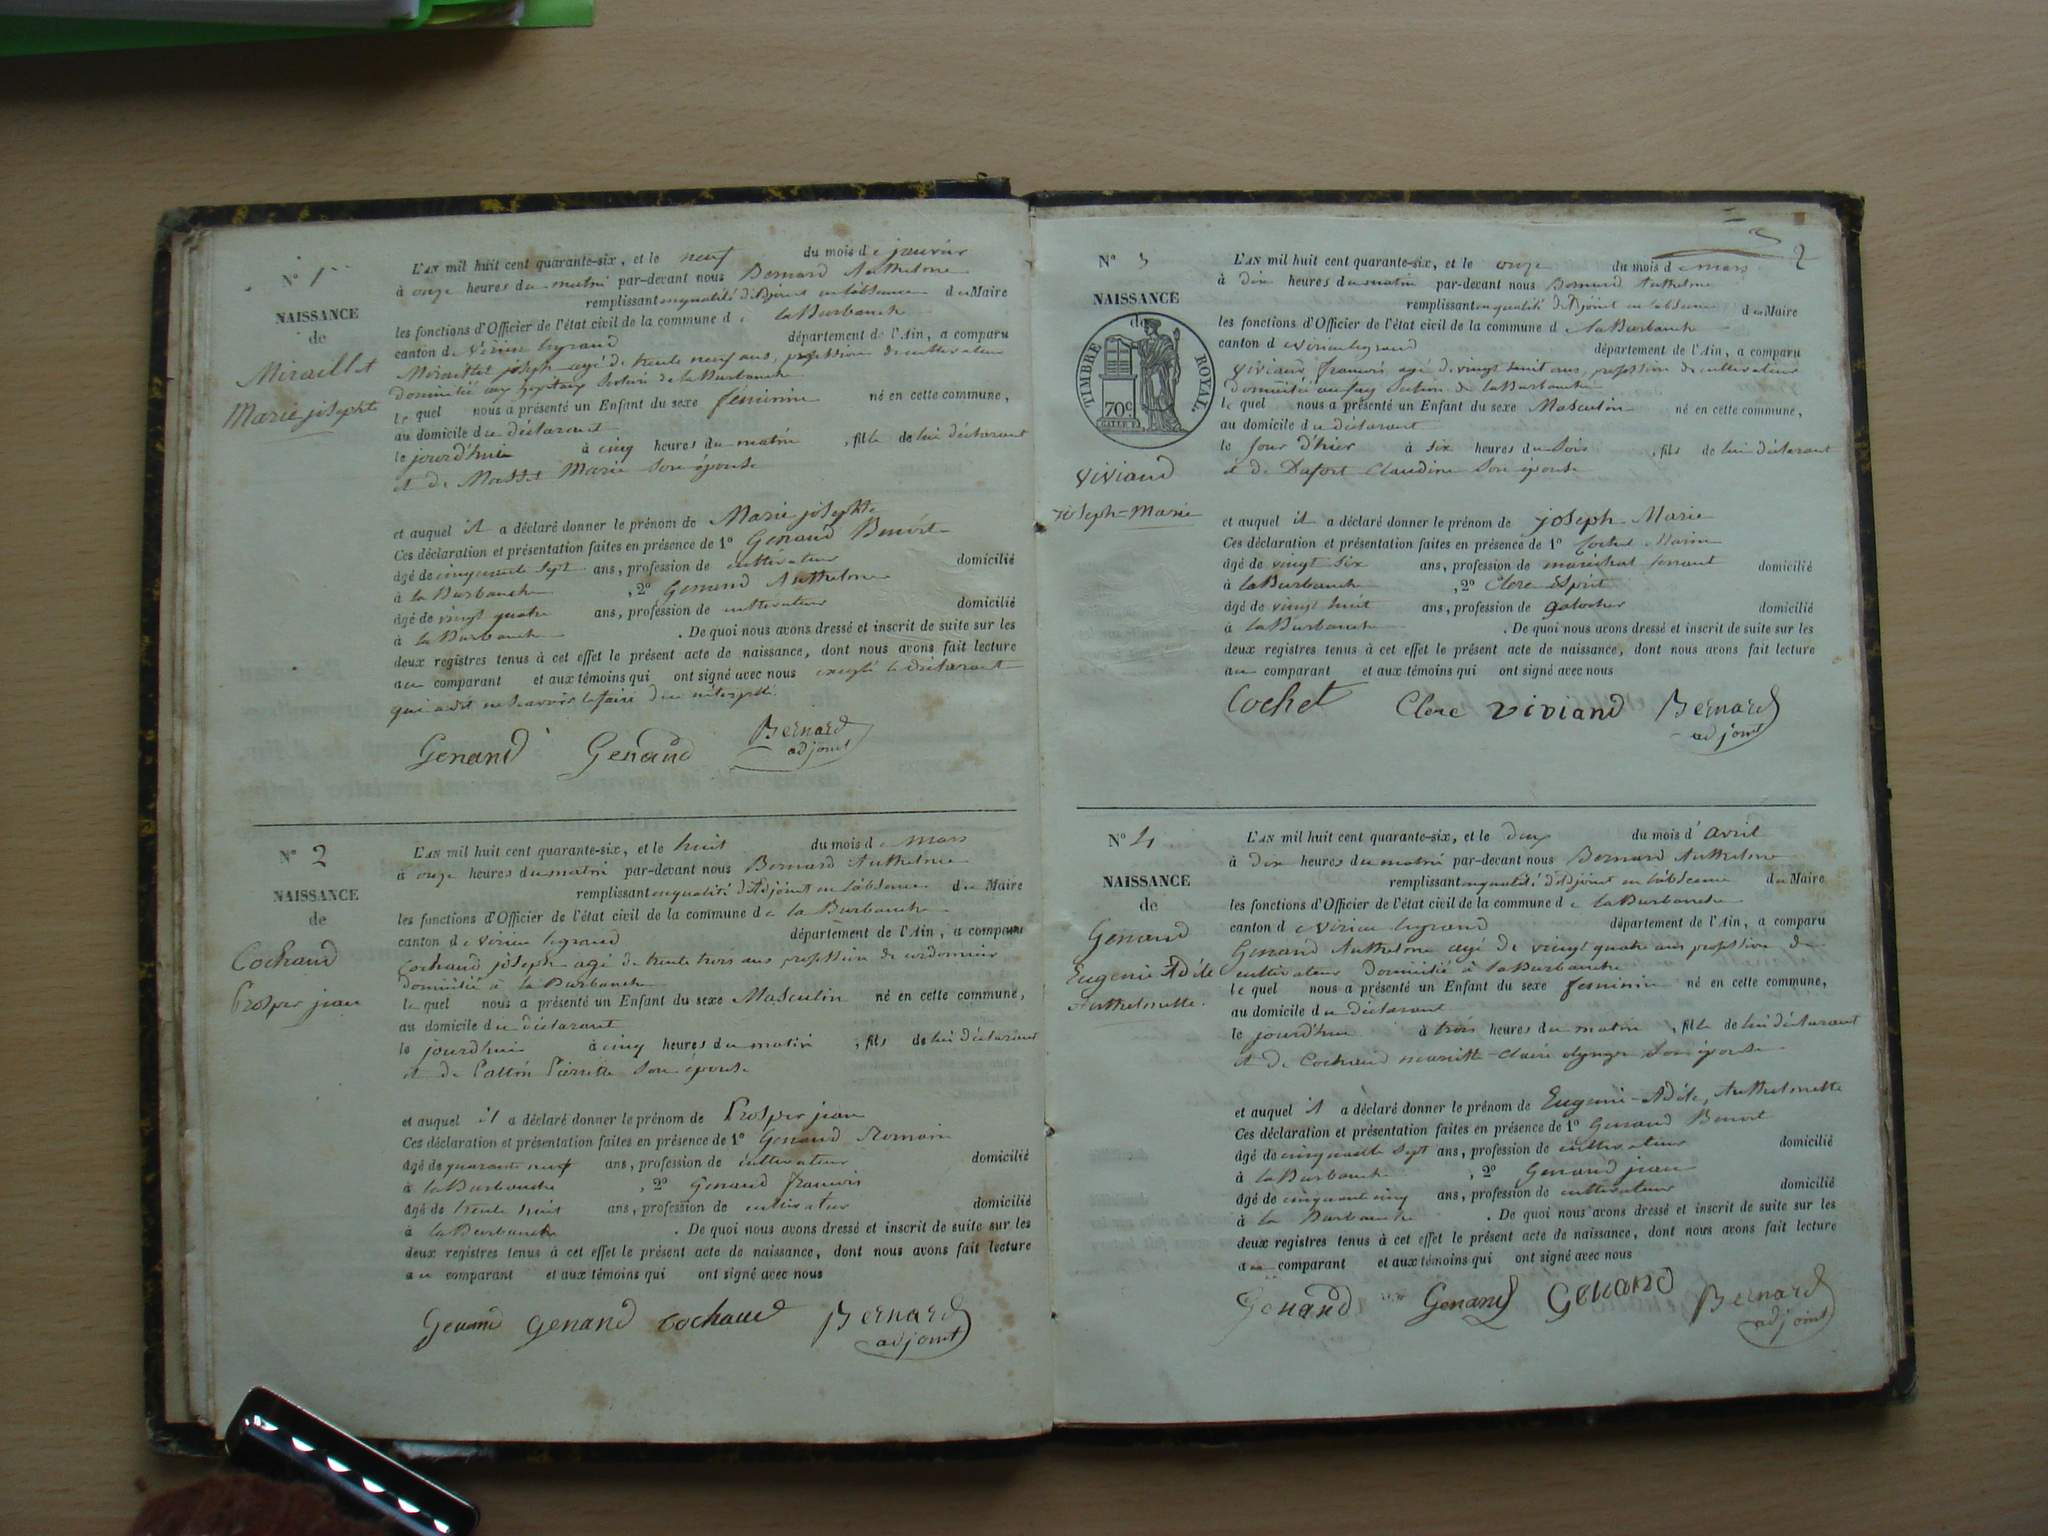 N° 1
NAISSANCE
de
Miraillet
Marie josephte
L'AN mil huit cent quarante-six, et le neuf du mois de janvier
à onze heures du matin par-devant nous Bernard Anthelme
remplissant en qualité d'Adjoint en l'absence du Maire
les fonctions d'Officier de l'état civil de la commune de la Burbanche
canton de Virieu legrand département de l'Ain, a comparu
Miraillet joseph agé de trente neuf ans, profession de cultivateur
domicilié aux section de la Burbanche
le quel nous a présenté un Enfant du sexe féminin né en cette commune,
au domicile du déclarant
le jourd'hui à cinq heures du matin, fille de lui déclarant
et de Masset Marie son épouse
et auquel il a déclaré donner le prénom de Marie josephte
Ces déclaration et présentation faites en présence de 1° Genand Benoit
âgé de cinquante sept ans, profession de cultivateur domicilié
à la Burbanche, 2° Genand Anthelme
âgé de vingt quatre ans, profession de cultivateur domicilié
à la Burbanche. De quoi nous avons dressé et inscrit de suite sur les
deux registres tenus à cet effet le présent acte de naissance, dont nous avons fait lecture
au comparant et aux témoins qui ont signé avec nous excepté le déclarant
qui a dit ne savoir le faire
Genand Genand Bernard
adjoint
N° 2
NAISSANCE
de
Cochaud
Prosper jean
L'AN mil huit cent quarante-six, et le huit du mois de mars
à onze heures du matin par-devant nous Bernard Anthelme
remplissant en qualité d'Adjoint en l'absence du Maire
les fonctions d'Officier de l'état civil de la commune de la Burbanche
canton de Virieu legrand département de l'Ain, a comparu
Cochaud joseph agé de trente trois ans profession de cordonnier
domicilié à la Burbanche
le quel nous a présenté un Enfant du sexe Masculin né en cette commune,
au domicile du déclarant
le jourd'hui à cinq heures du matin, fils de lui déclarant
et de Patton Pierrette son épouse
et auquel il a déclaré donner le prénom de Prosper jean
Ces déclaration et présentation faites en présence de 1° Genand Romain
âgé de quarante neuf ans, profession de cultivateur domicilié
à la Burbanche, 2° Genand francois
âgé de trente huit ans, profession de cultivateur domicilié
à la Burbanche. De quoi nous avons dressé et inscrit de suite sur les
deux registres tenus à cet effet le présent acte de naissance, dont nous avons fait lecture
au comparant et aux témoins qui ont signé avec nous
Genand Genand Cochaud Bernard
adjoint
2
N° 3
NAISSANCE
de
TIMBRE ROYAL
70c
viviand
joseph-Marie
L'AN mil huit cent quarante-six, et le onze du mois de mars
à dix heures du matin par-devant nous Bernard Anthelme
remplissant en qualité d'Adjoint en l'absence du Maire
les fonctions d'Officier de l'état civil de la commune de la Burbanche
canton de Virieu legrand département de l'Ain, a comparu
viviand francois agé de vingt huit ans, profession de cultivateur
domicilié au section de la Burbanche
le quel nous a présenté un Enfant du sexe Masculin né en cette commune,
au domicile du déclarant
le Jour d'hier à six heures du soir, fils de lui déclarant
et de Dufort Claudine son épouse
et auquel il a déclaré donner le prénom de joseph Marie
Ces déclaration et présentation faites en présence de 1° Cochet Marin
âgé de vingt six ans, profession de maréchal ferrant domicilié
à la Burbanche, 2° Clerc esprit
âgé de vingt huit ans, profession de galocher domicilié
à la Burbanche. De quoi nous avons dressé et inscrit de suite sur les
deux registres tenus à cet effet le présent acte de naissance, dont nous avons fait lecture
au comparant et aux témoins qui ont signé avec nous
Cochet Clerc viviand Bernard
adjoint
N° 4
NAISSANCE
de
Genand
Eugenie Adèle
Anthelmette.
L'AN mil huit cent quarante-six, et le deux du mois d'avril
à dix heures du matin par-devant nous Bernard Anthelme
remplissant en qualité d'Adjoint en l'absence du Maire
les fonctions d'Officier de l'état civil de la commune de la Burbanche
canton de Virieu legrand département de l'Ain, a comparu
Genand Anthelme agé de vingt quatre ans profession de
cultivateur domicilié à la Burbanche
le quel nous a présenté un Enfant du sexe féminin né en cette commune,
au domicile du déclarant
le jourd'hui à trois heures du matin, fille de lui déclarant
et de Cochaud mariette-claire son épouse
et auquel il a déclaré donner le prénom de Eugenie-Adèle, Anthelmette
Ces déclaration et présentation faites en présence de 1° Genand Benoit
âgé de cinquante sept ans, profession de cultivateur domicilié
à la Burbanche, 2° Genand jean
âgé de cinquante cinq ans, profession de cultivateur domicilié
à la Burbanche. De quoi nous avons dressé et inscrit de suite sur les
deux registres tenus à cet effet le présent acte de naissance, dont nous avons fait lecture
au comparant et aux témoins qui ont signé avec nous
Genand Genand Genand Bernard
adjoint